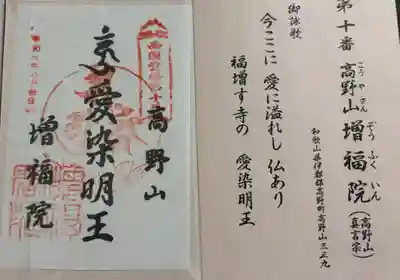 第十番 高野山 増福院 (高野山真言宗)
こうやさん ぞうふくいん
和歌山県伊都郡高野町高野山三三九
御詠歌
今ここに 愛に溢れし 仏あり
福増す寺の 愛染明王
高野山
愛染明王
増福院